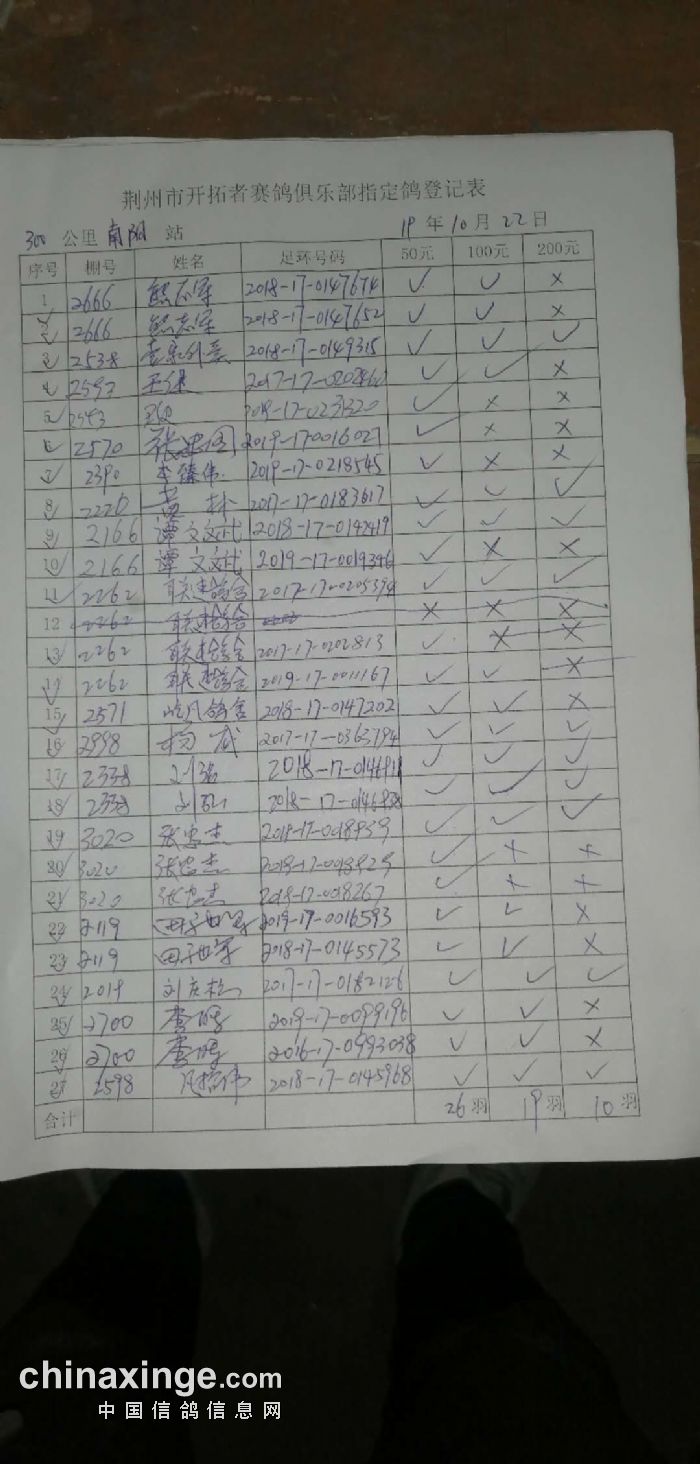 荆州市开拓者赛鸽俱乐部指定鸽登记表
300 公里 南阳 站 19 年 10 月 22 日
序号 棚号 姓名 足环号码 50元 100元 200元
1 2666 熊志军 2018-17-0147674 ✓ ✓ ×
2 2666 熊志军 2018-17-0147652 ✓ ✓ ×
3 2538 2018-17-0149315 ✓ ✓ ✓
4 2592 2017-17-0202460 ✓ ✓ ×
5 2543 ✓ × ×
6 2570 2019-17-0016027 ✓ × ×
7 2390 李臻伟 2019-17-0218545 ✓ × ×
8 2220 黄林 2017-17-0183617 ✓ ✓ ✓
9 2166 谭文文代 2018-17-0142419 ✓ ✓ ✓
10 2166 谭文文代 2019-17-0019346 ✓ × ×
11 2262 联建鸽舍 2017-17-0205394 ✓ ✓ ✓
12 2262 联建鸽舍 × × ×
13 2262 联建鸽舍 2017-17-0202813 ✓ × ×
14 2262 联建鸽舍 2019-17-0011167 ✓ ✓ ×
15 2571 鸽舍 2018-17-0147202 ✓ ✓ ×
16 2998 杨威 2017-17-0363794 ✓ ✓ ✓
17 2338 ✓ ✓ ✓
18 2338 ✓ ✓ ✓
19 3020 张忠杰 ✓ ✓ ✓
20 3020 张忠杰 ✓ × ×
21 3020 张忠杰 2018-17-0018267 ✓ × ×
22 2119 2019-17-0016593 ✓ ✓ ×
23 2119 2018-17-0145573 ✓ ✓ ×
24 2019 刘庆松 2017-17-0182126 ✓ ✓ ✓
25 2700 2019-17-0099196 ✓ ✓ ×
26 2700 2016-17-0993038 ✓ ✓ ×
27 2598 2018-17-0145968 ✓ ✓ ✓
合计 26 羽 19 羽 10 羽
chinaxinge.com
中国信鸽信息网